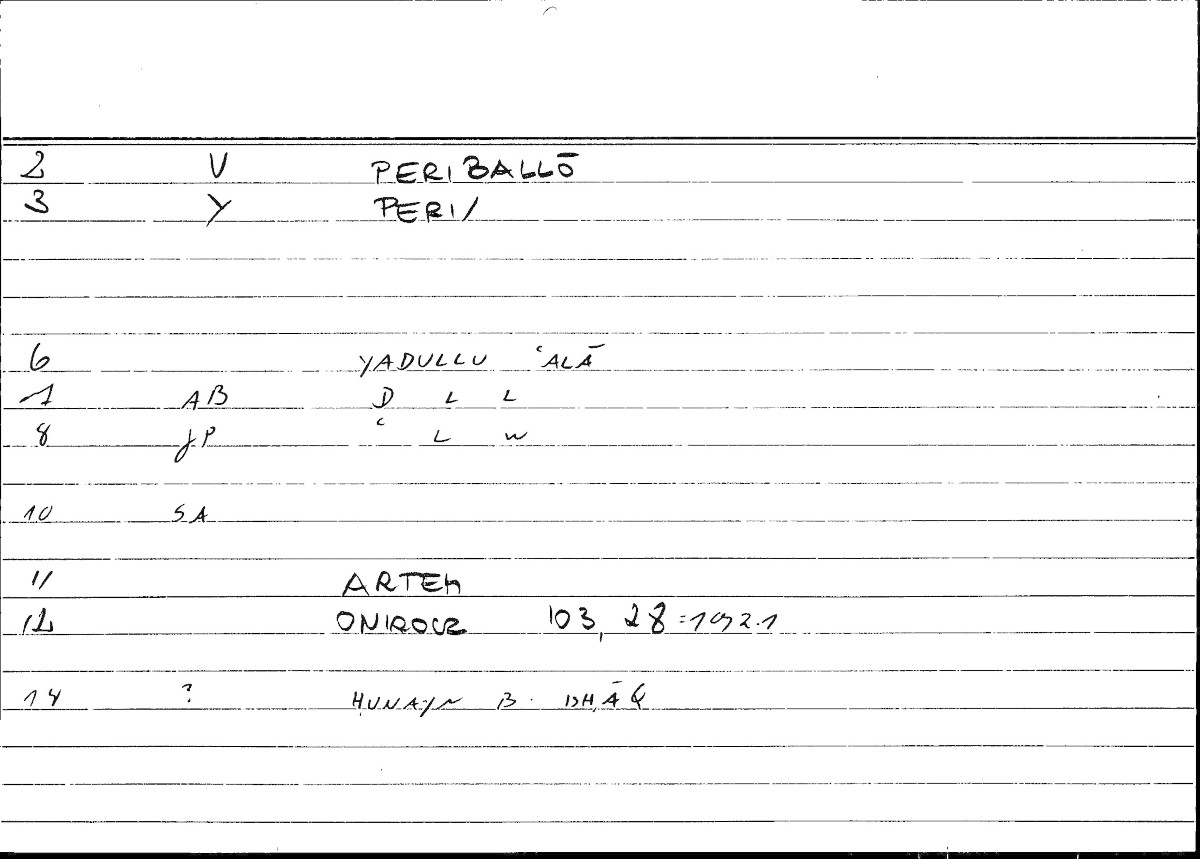 2 V PERIBALLŌ
3 Y PERI/
6 YADULLU ʿALĀ
7 AB D L L
8 JP ʿ L W
10 SA
11 ARTEM
12 ONIROCR 103, 28 =192.1
14 ? ḤUNAYN B. ISḤĀQ